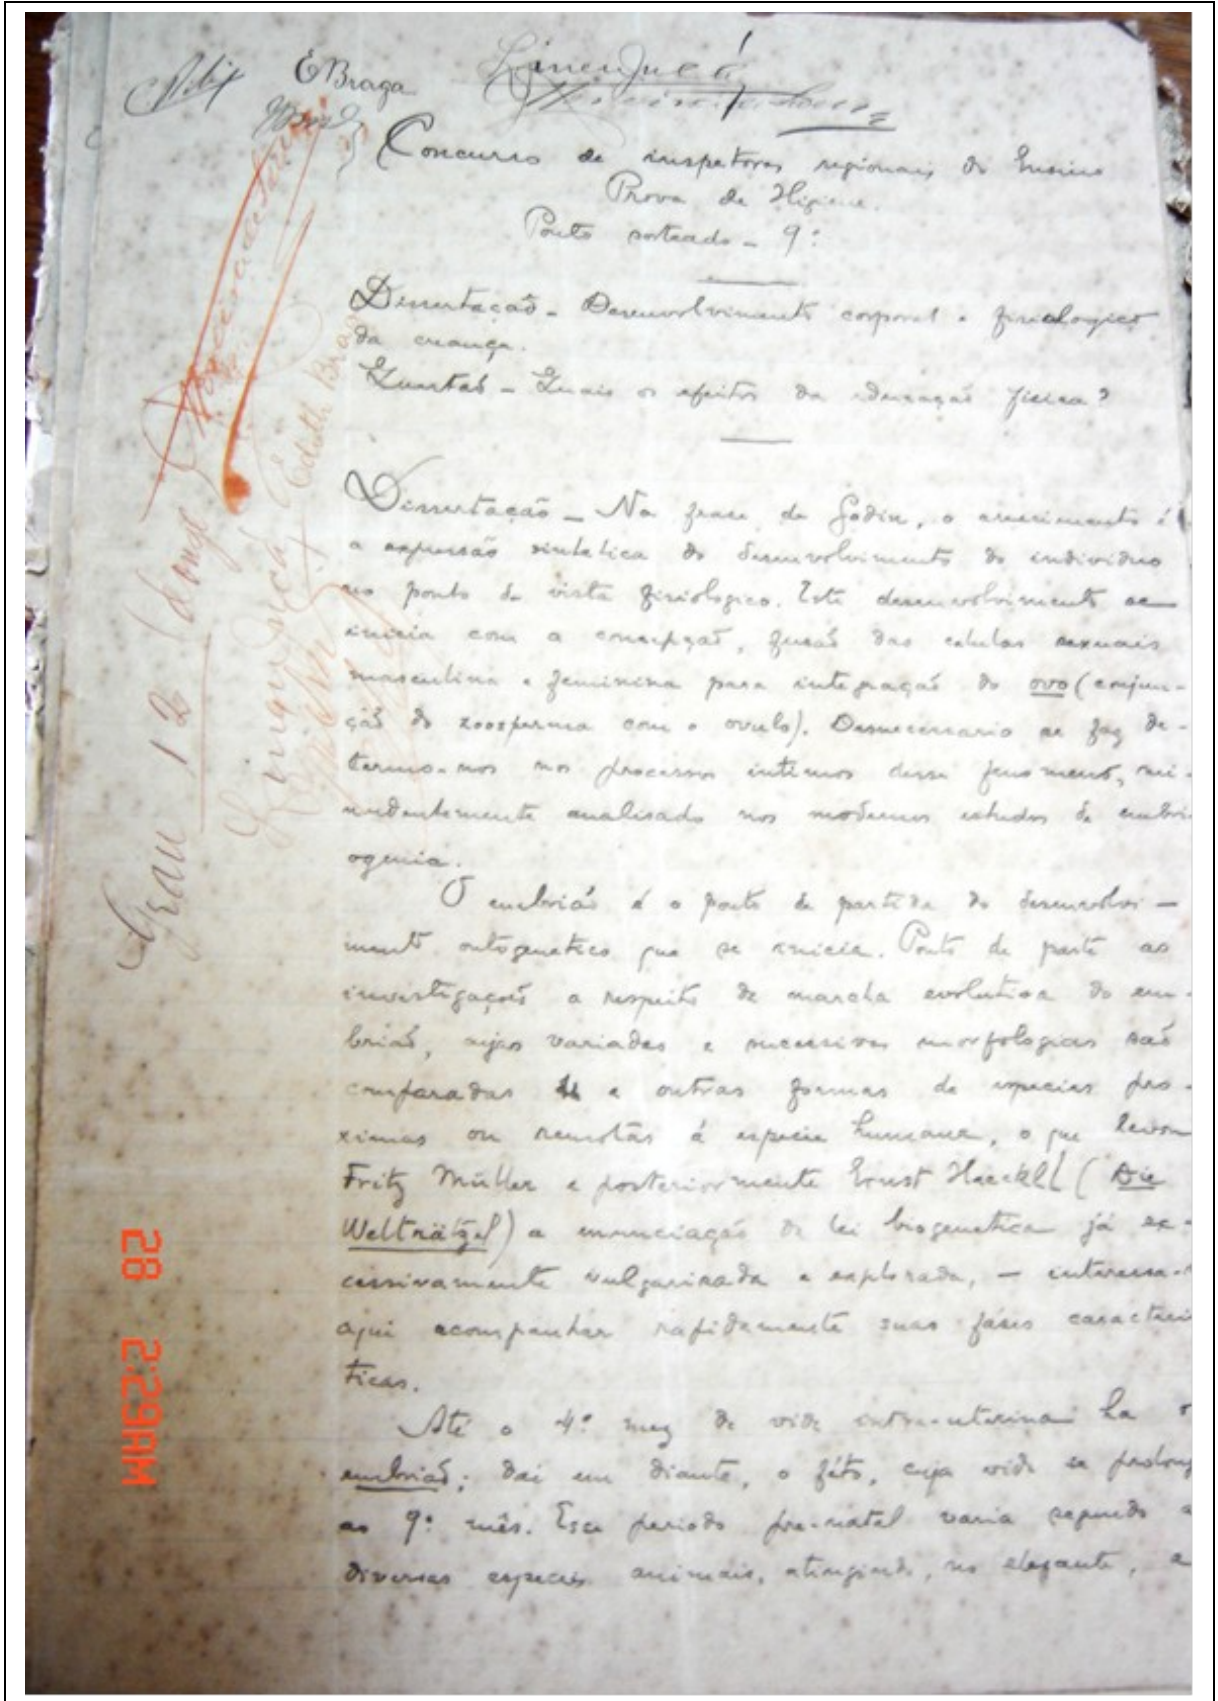 EBraga
Concurso de inspetores regionais do Ensino
Prova de Higiene.
Ponto sorteado - 9º
Dissertação - Desenvolvimento corporal e fisiologico
da creança.
Questão - Quais os efeitos da educação fisica?
Dissertação - Na frase de Godin, o crescimento é
a expressão sintetica do desenvolvimento do individuo
no ponto de vista fisiologico. Este desenvolvimento se
inicia com a concepção, fusão das celulas sexuais
masculina e feminina para integração do ovo (conjun-
ção do zoosperma com o ovulo). Desnecessario se faz de-
termo-nos nos processos intimos desse fenomeno, mi-
nudentemente analisado nos modernos estudos de embri-
ogenia.
O embrião é o ponto de partida do desenvolvi-
mento ontogenetico que se inicia. Ponto de parte as
investigações a respeito da marcha evolutiva do em-
brião, cujas variadas e sucessivas morfologias são
comparadas a outras formas de especies pro-
ximas ou remotas á especie humana, o que levou
Fritz Müller e posteriormente Ernst Haeckel (Die
Welträtzel) a enunciação da lei biogenetica já ex-
cessivamente vulgarizada e explorada, - interessa-
aqui acompanhar rapidamente suas fáses caracteris
ticas.
Até o 4º mez de vida intra-uterina ha o
embrião; dai em diante, o féto, cuja vida se prolong
ao 9º mês. Esse periodo pre-natal varia segundo a
diversas especies animais, atingindo, no elefante, a
Grau 12 (doze)
Edith Braga
28 2:29AM